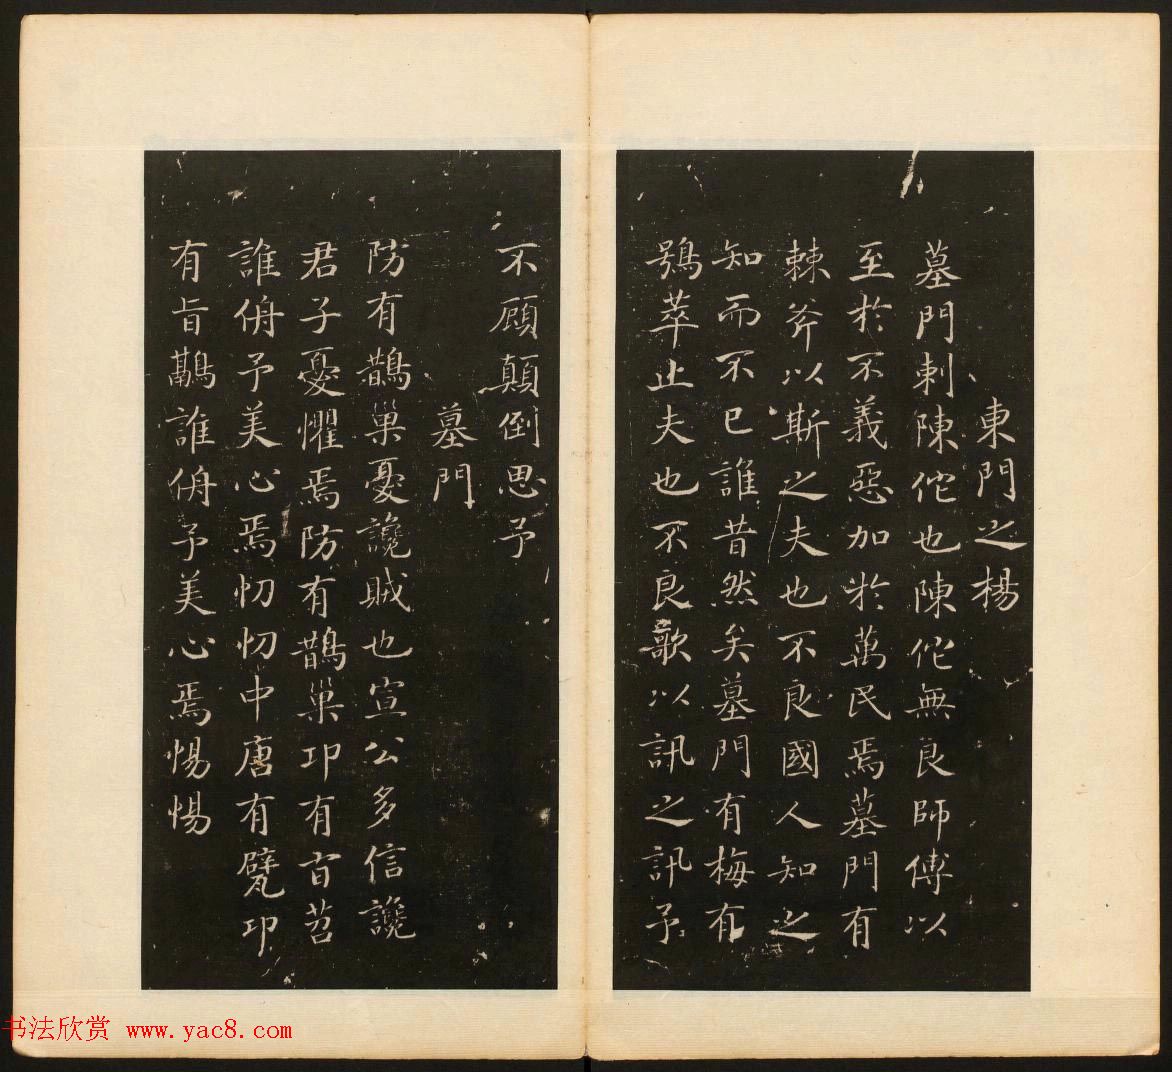 東門之楊
墓門刺陳佗也陳佗無良師傅以
至於不義惡加於萬民焉墓門有
棘斧以斯之夫也不良國人知之
知而不已誰昔然矣墓門有梅有
鴞萃止夫也不良歌以訊之訊予
不頋顛倒思予
墓門
防有鵲巢憂讒賊也宣公多信讒
君子憂懼焉防有鵲巢邛有旨苕
誰侜予美心焉忉忉中唐有甓邛
有旨鷊誰侜予美心焉惕惕
书法欣赏 www.yac8.com